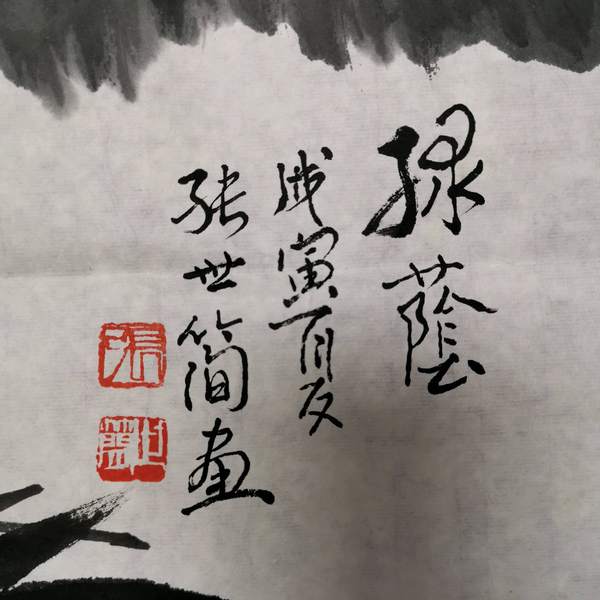 绿蔭
戊寅夏
张世简画
張
世簡